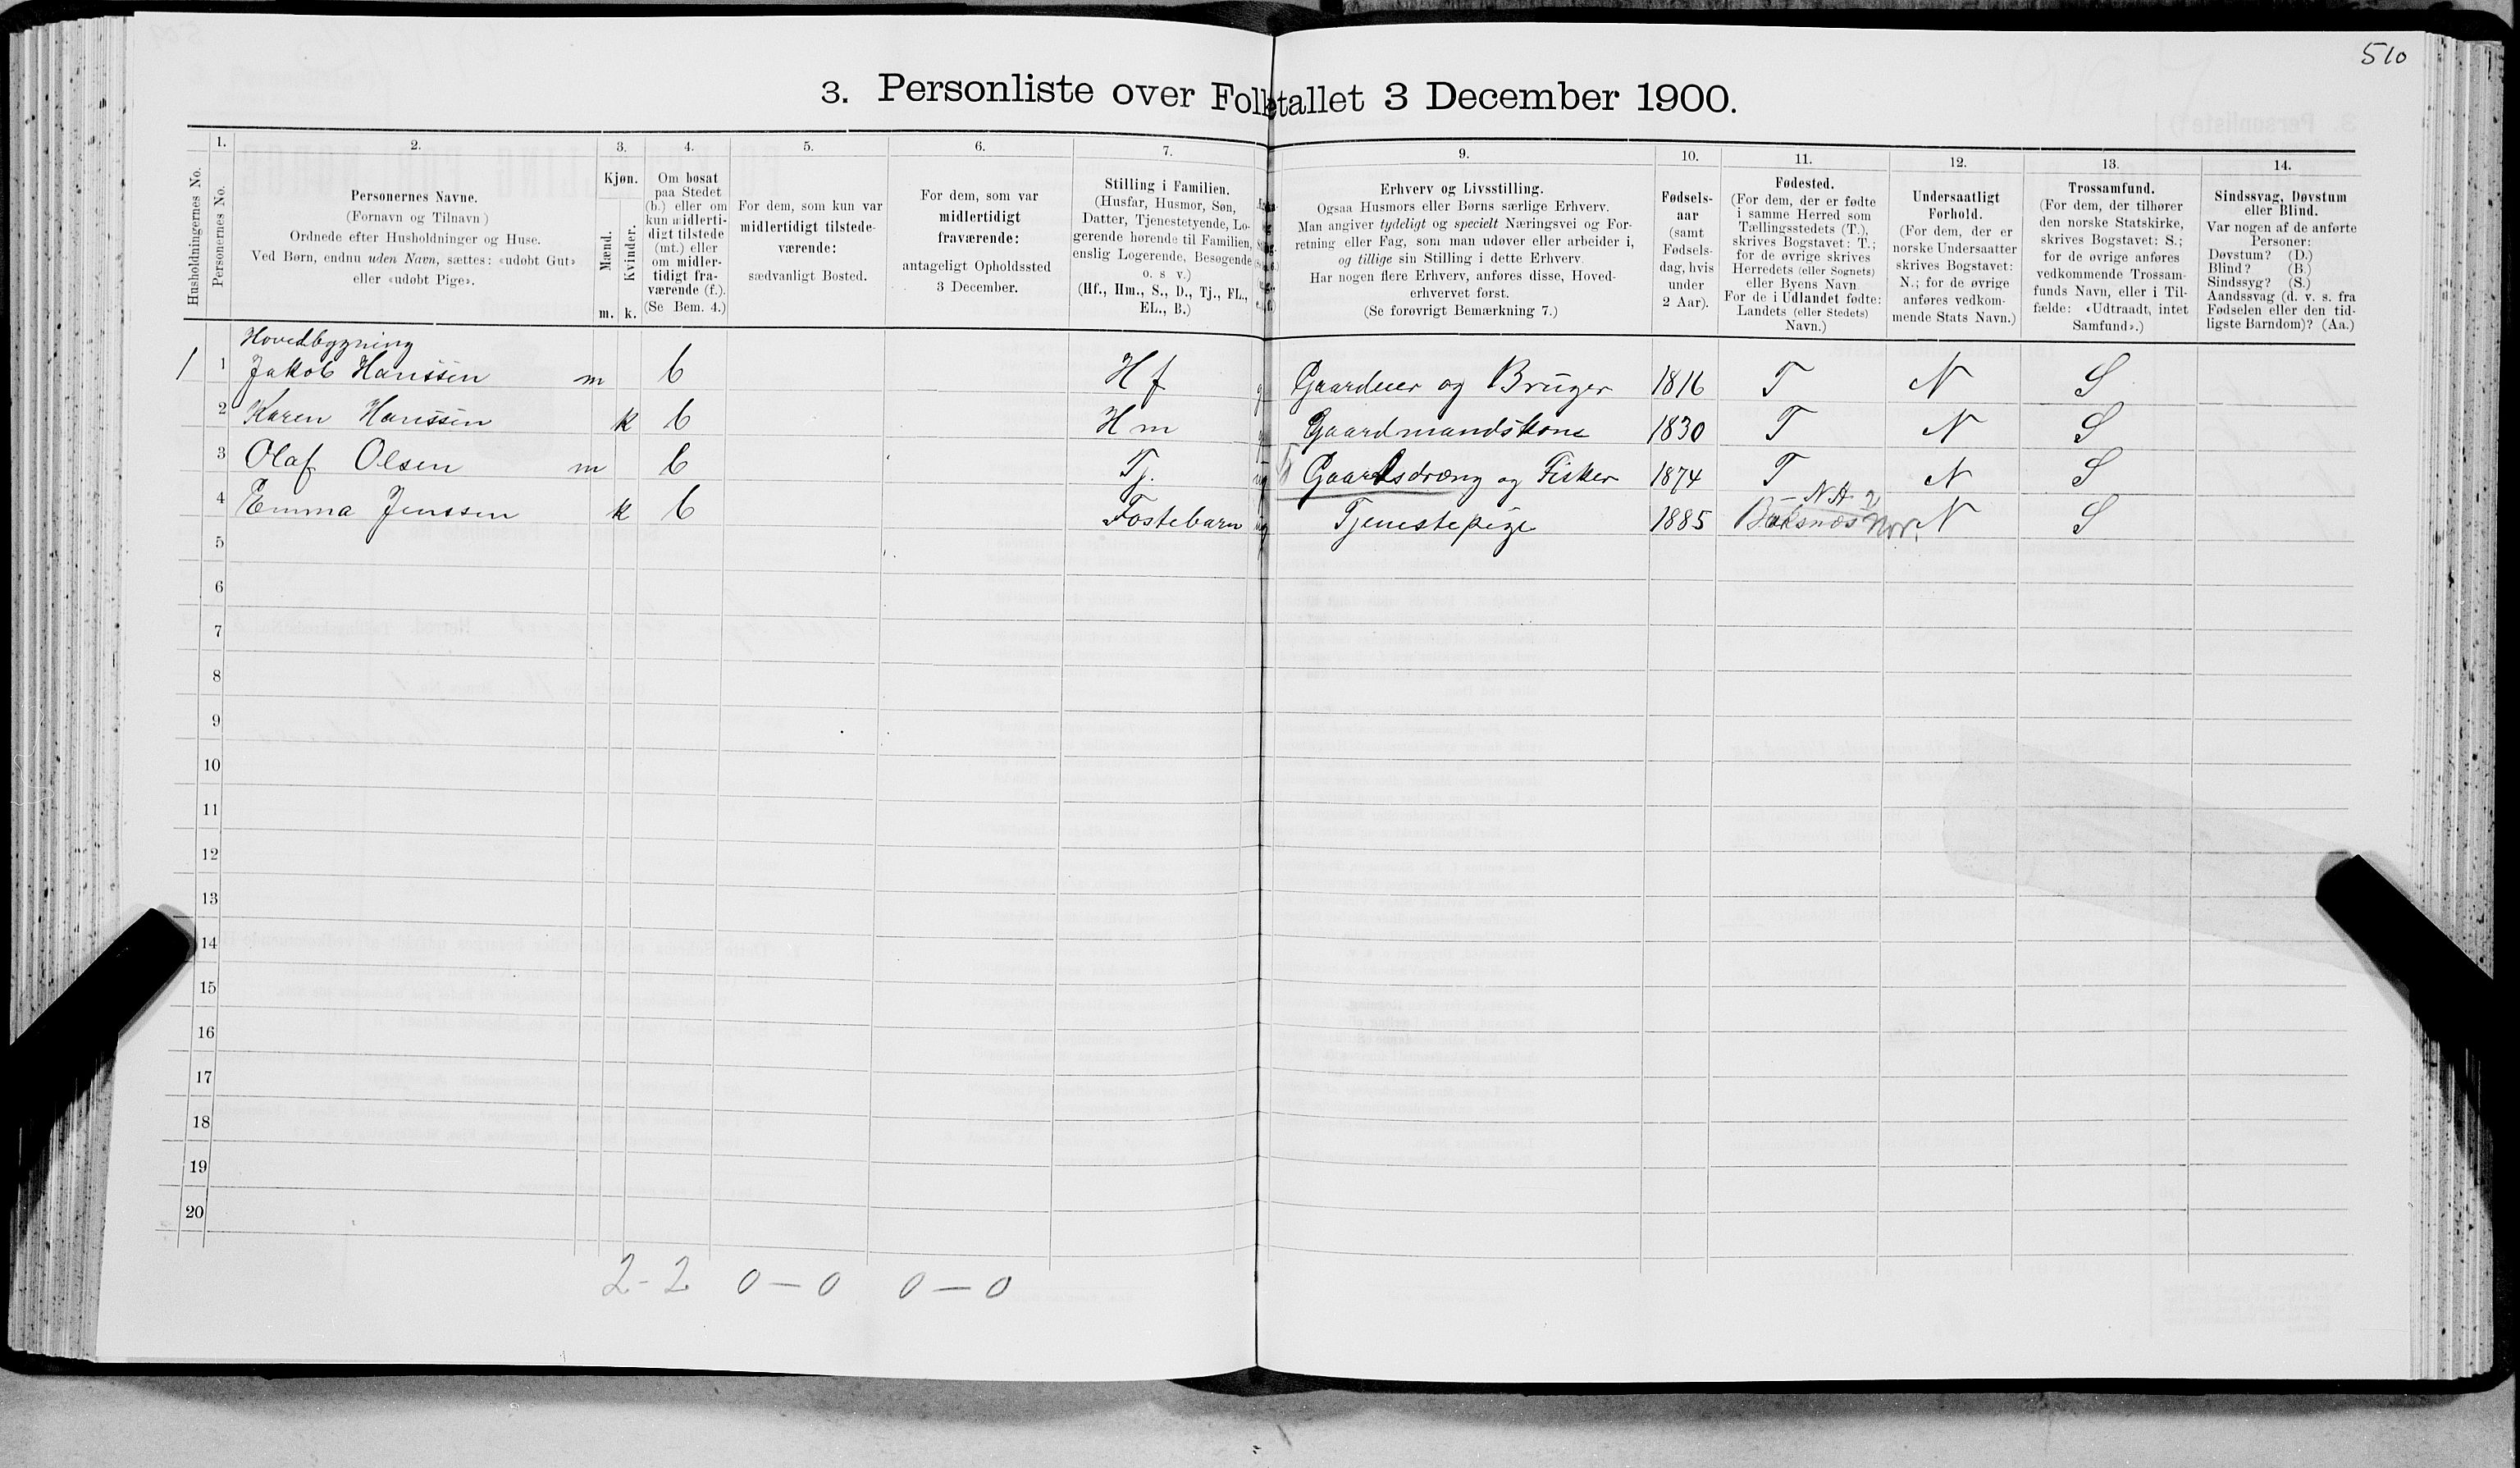 510
3. Personliste over Folketallet 3 December 1900.
1. 2. 3. 4. 5. 6. 7. 9. 10. 11. 12. 13. 14.
Husholdningernes No.
Personernes No.
Personernes Navne.
(Fornavn og Tilnavn)
Ordnede efter Husholdninger og Huse.
Ved Børn, endnu uden Navn, sættes: «udøbt Gut»
eller «udøbt Pige».
Kjøn.
Mænd.
Kvinder.
m. k.
Om bosat
paa Stedet
(b.) eller om
kun midlerti-
digt tilstede
(mt.) eller
om midler-
tidigt fra-
værende (f.).
(Se Bem. 4.)
For dem, som kun var
midlertidigt tilstede-
værende:
sædvanligt Bosted.
For dem, som var
midlertidigt
fraværende:
antageligt Opholdssted
3 December.
Stilling i Familien.
(Husfar, Husmor, Søn,
Datter, Tjenestetyende, Lo-
gerende hørende til Familien,
enslig Logerende, Besøgende
o. s v.)
(Hf., Hm., S., D., Tj., FL.,
EL., B.)
Erhverv og Livsstilling.
Ogsaa Husmors eller Børns særlige Erhverv.
Man angiver tydeligt og specielt Næringsvei og For-
retning eller Fag, som man udøver eller arbeider i,
og tillige sin Stilling i dette Erhverv.
Har nogen flere Erhverv, anføres disse, Hoved-
erhvervet først.
(Se forøvrigt Bemærkning 7.)
Fødsels-
aar
(samt
Fødsels-
dag, hvis
under
2 Aar).
Fødested.
(For dem, der er fødte
i samme Herred som
Tællingsstedets (T.),
skrives Bogstavet: T.;
for de øvrige skrives
Herredets (eller Sognets)
eller Byens Navn
For de i Udlandet fødte:
Landets (eller Stedets)
Navn.)
Undersaatligt
Forhold.
(For dem, der er
norske Undersaatter
skrives Bogstavet:
N.; for de øvrige
anføres vedkom-
mende Stats Navn.)
Trossamfund.
(For dem, der tilhører
den norske Statskirke,
skrives Bogstavet: S.;
for de øvrige anføres
vedkommende Trossam-
funds Navn, eller i Til-
fælde: «Udtraadt, intet
Samfund».)
Sindssvag, Døvstum
eller Blind.
Var nogen af de anførte
Personer:
Døvstum? (D.)
Blind? (B.)
Sindssyg? (S.)
Aandssvag (d. v. s. fra
Fødselen eller den tid-
ligste Barndom)? (Aa.)
Hovedbygning
1 1 Jakob Hanssen m b Hf g Gaardeier og Bruger 1816 T N S
2 Karen Hanssen k b Hm g Gaardmandskone 1830 T N S
3 Olaf Olsen m b Tj. ug Gaardsdræng og Fisker 1874 T N S
4 Emma Jenssen k b Fostebarn ug Tjenestepige 1885 Buksnæs Nor. N S
5
6
7
8
9
10
11
12
13
14
15
16
17
18
19
20
2-2 0-0 0-0